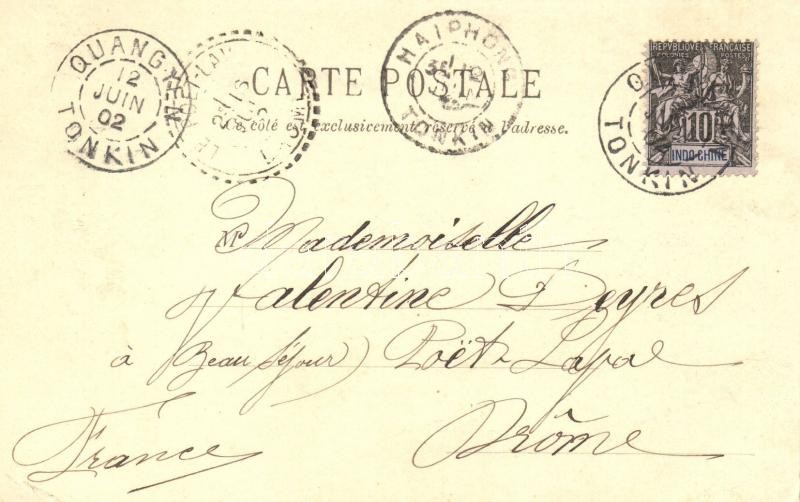 QUANG
12
JUIN
02
TONKIN
LE POET-LAVAL
HAIPHONG
TONKIN
REPUBLIQUE FRANÇAISE
COLONIES POSTES
10
INDO-CHINE
TONKIN
CARTE POSTALE
Ce côté est exclusivement réservé à l'adresse.
Mademoiselle
Valentine Deyres
à Beau Séjour) Poët-Laval
France Drôme